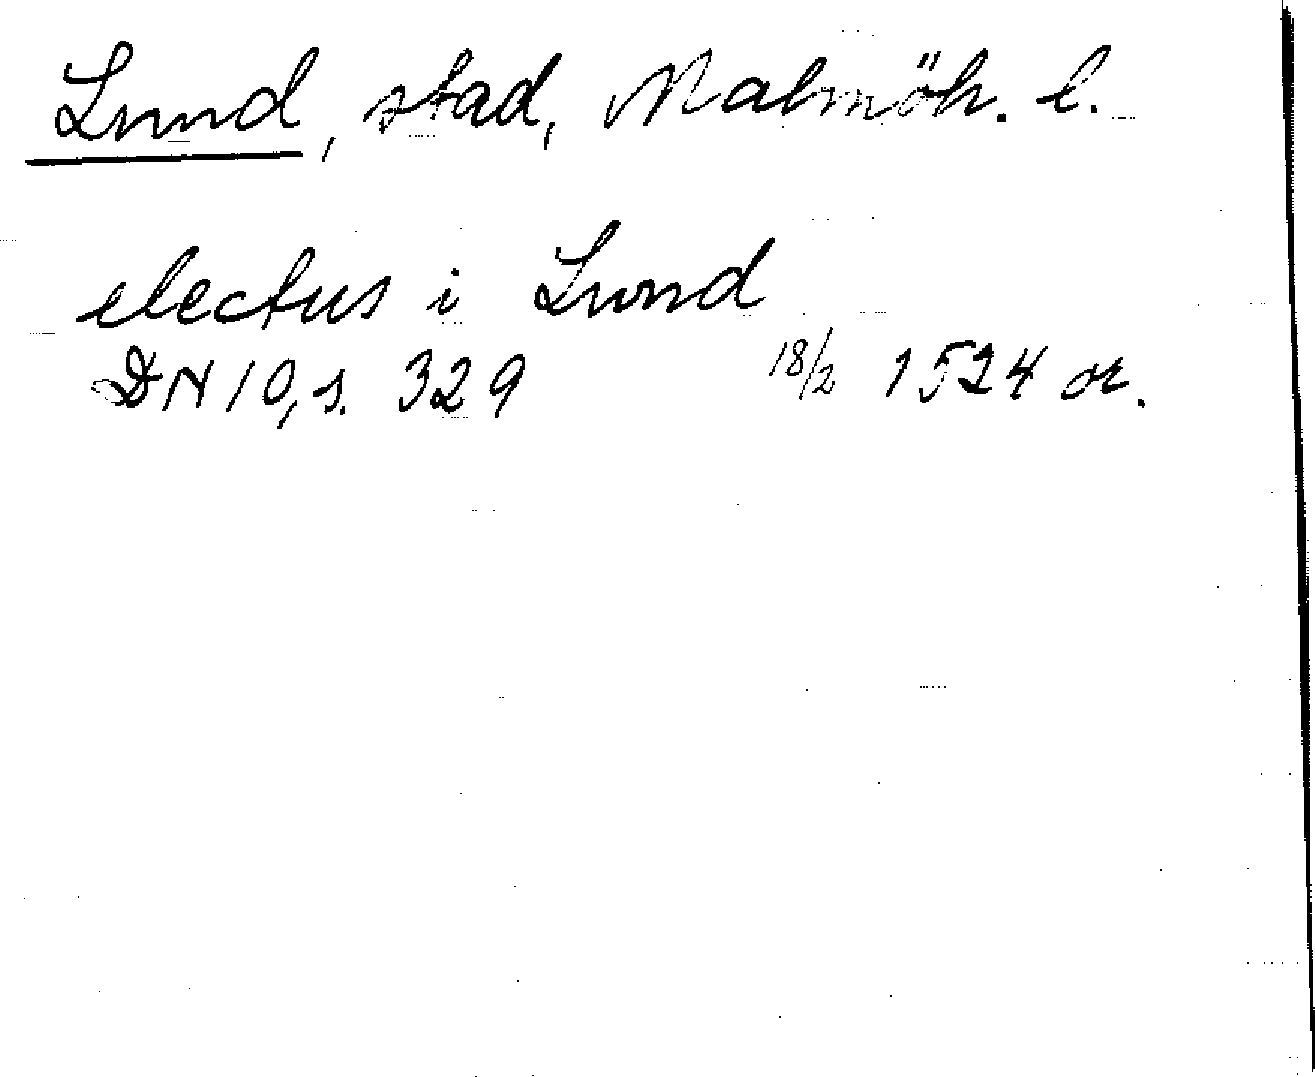 Lund, stad, Malmöh. l.
electus i Lwnd
DN 10, s. 329 18/2 1524 or.